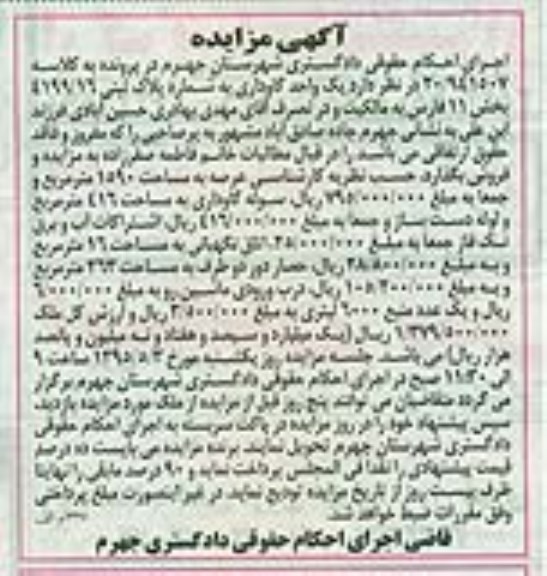 آگهی مزایده
اجرای احکام حقوقی دادگستری شهرستان جهرم در پرونده به کلاسه
۲۰/۹۴۱۵۰۷ در نظر دارد یک واحد گاوداری به شماره پلاک ثبتی ۴۱۹۹/۱۶
بخش ۱۱ فارس به مالکیت و در تصرف آقای مهدی بهادری حسین آبادی فرزند
ابن علی به نشانی جهرم جاده صادق آباد مشهور به برصاحبی را که مفروز و فاقد
حقوق ارتفاقی می باشد را در قبال مطالبات خانم فاطمه صفرزاده به مزایده و
فروش بگذارد. حسب نظریه کارشناسی عرصه به مساحت ۱۵۹۰ مترمربع و
جمعا به مبلغ ۷۹۵/۰۰۰/۰۰۰ ریال، سوله گاوداری به مساحت ۴۱۶ مترمربع
و لوله دست ساز و جمعا به مبلغ ۴۱۶/۰۰۰/۰۰۰ ریال، اشتراکات آب و برق
تک فاز جمعا به مبلغ ۲۵/۰۰۰/۰۰۰، اتاق نگهبانی به مساحت ۱۶ مترمربع
و به مبلغ ۲۸/۸۰۰/۰۰۰ ریال، حصار دور دو طرف به مساحت ۲۶۳ مترمربع
و به مبلغ ۱۰۵/۲۰۰/۰۰۰ ریال، درب ورودی ماشین رو به مبلغ ۶/۰۰۰/۰۰۰
ریال و یک عدد منبع ۶۰۰۰ لیتری به مبلغ ۳/۵۰۰/۰۰۰ ریال و ارزش کل ملک
۱/۳۷۹/۵۰۰/۰۰۰ ریال (یک میلیارد و سیصد و هفتاد و نه میلیون و پانصد
هزار ریال) می باشد. جلسه مزایده روز یکشنبه مورخ ۱۳۹۵/۵/۳ ساعت ۹
الی ۱۱:۳۰ صبح در اجرای احکام حقوقی دادگستری شهرستان جهرم برگزار
می گردد متقاضیان می توانند پنج روز قبل از مزایده از ملک مورد مزایده بازدید،
سپس پیشنهاد خود را در روز مزایده در پاکت سربسته به اجرای احکام حقوقی
دادگستری شهرستان جهرم تحویل نمایند. برنده مزایده می بایست ده درصد
قیمت پیشنهادی را نقدا فی المجلس پرداخت نماید و ۹۰ درصد مابقی را نهایتا
ظرف بیست روز از تاریخ مزایده تودیع نماید. در غیر اینصورت مبلغ پرداختی
وفق مقررات ضبط خواهد شد.
قاضی اجرای احکام حقوقی دادگستری جهرم